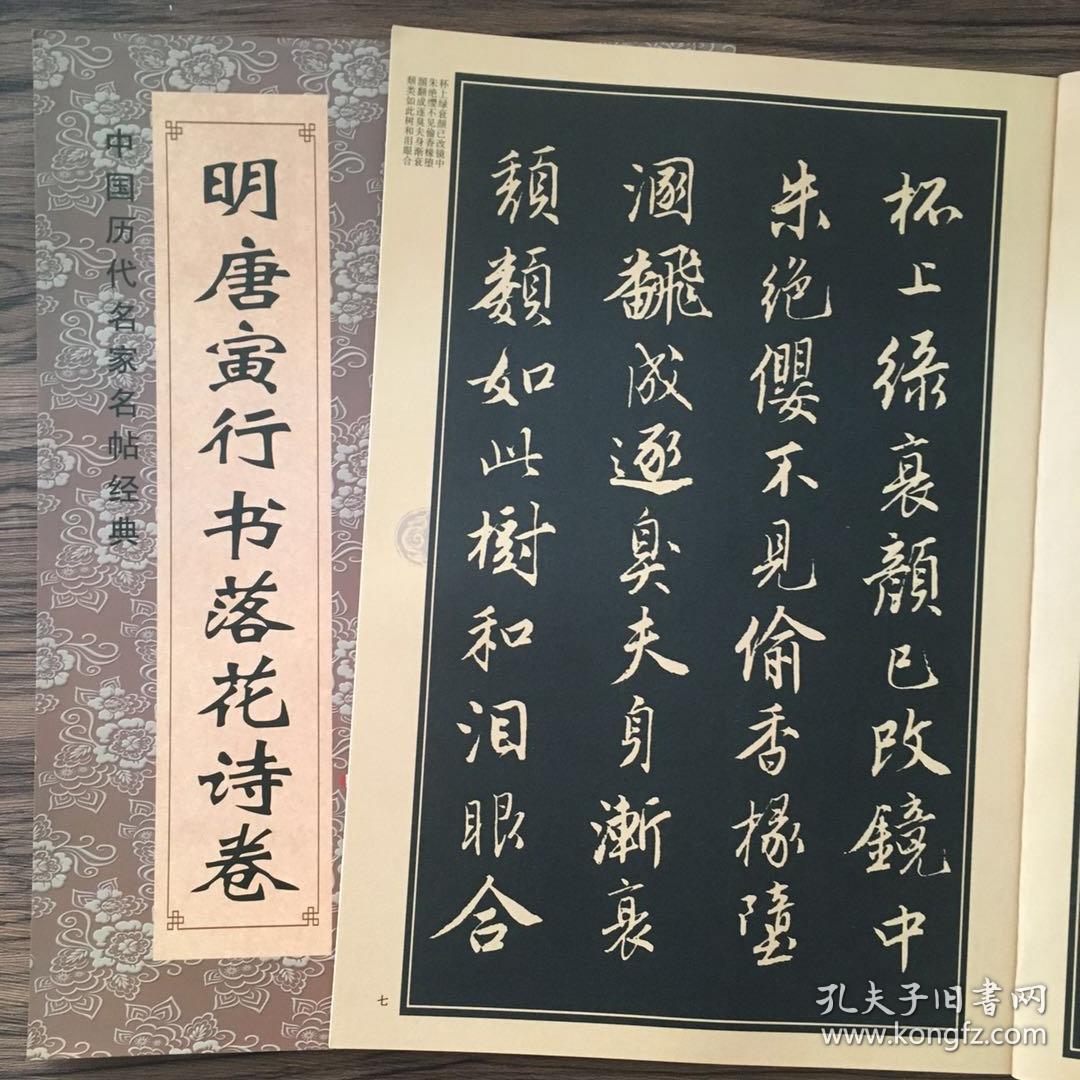 中国历代名家名帖经典
明唐寅行书落花诗卷
杯上绿衰颜已改镜中
朱绝缨不见偷香椽堕
溷翻成逐臭夫身渐衰
颓类如此树和泪眼合
杯上綠衰顏已改鏡中
朱絕纓不見偷香掾墮
溷飜成逐臭夫身漸衰
頹類如此樹和泪眼合
七
孔夫子旧書网
www.kongfz.com